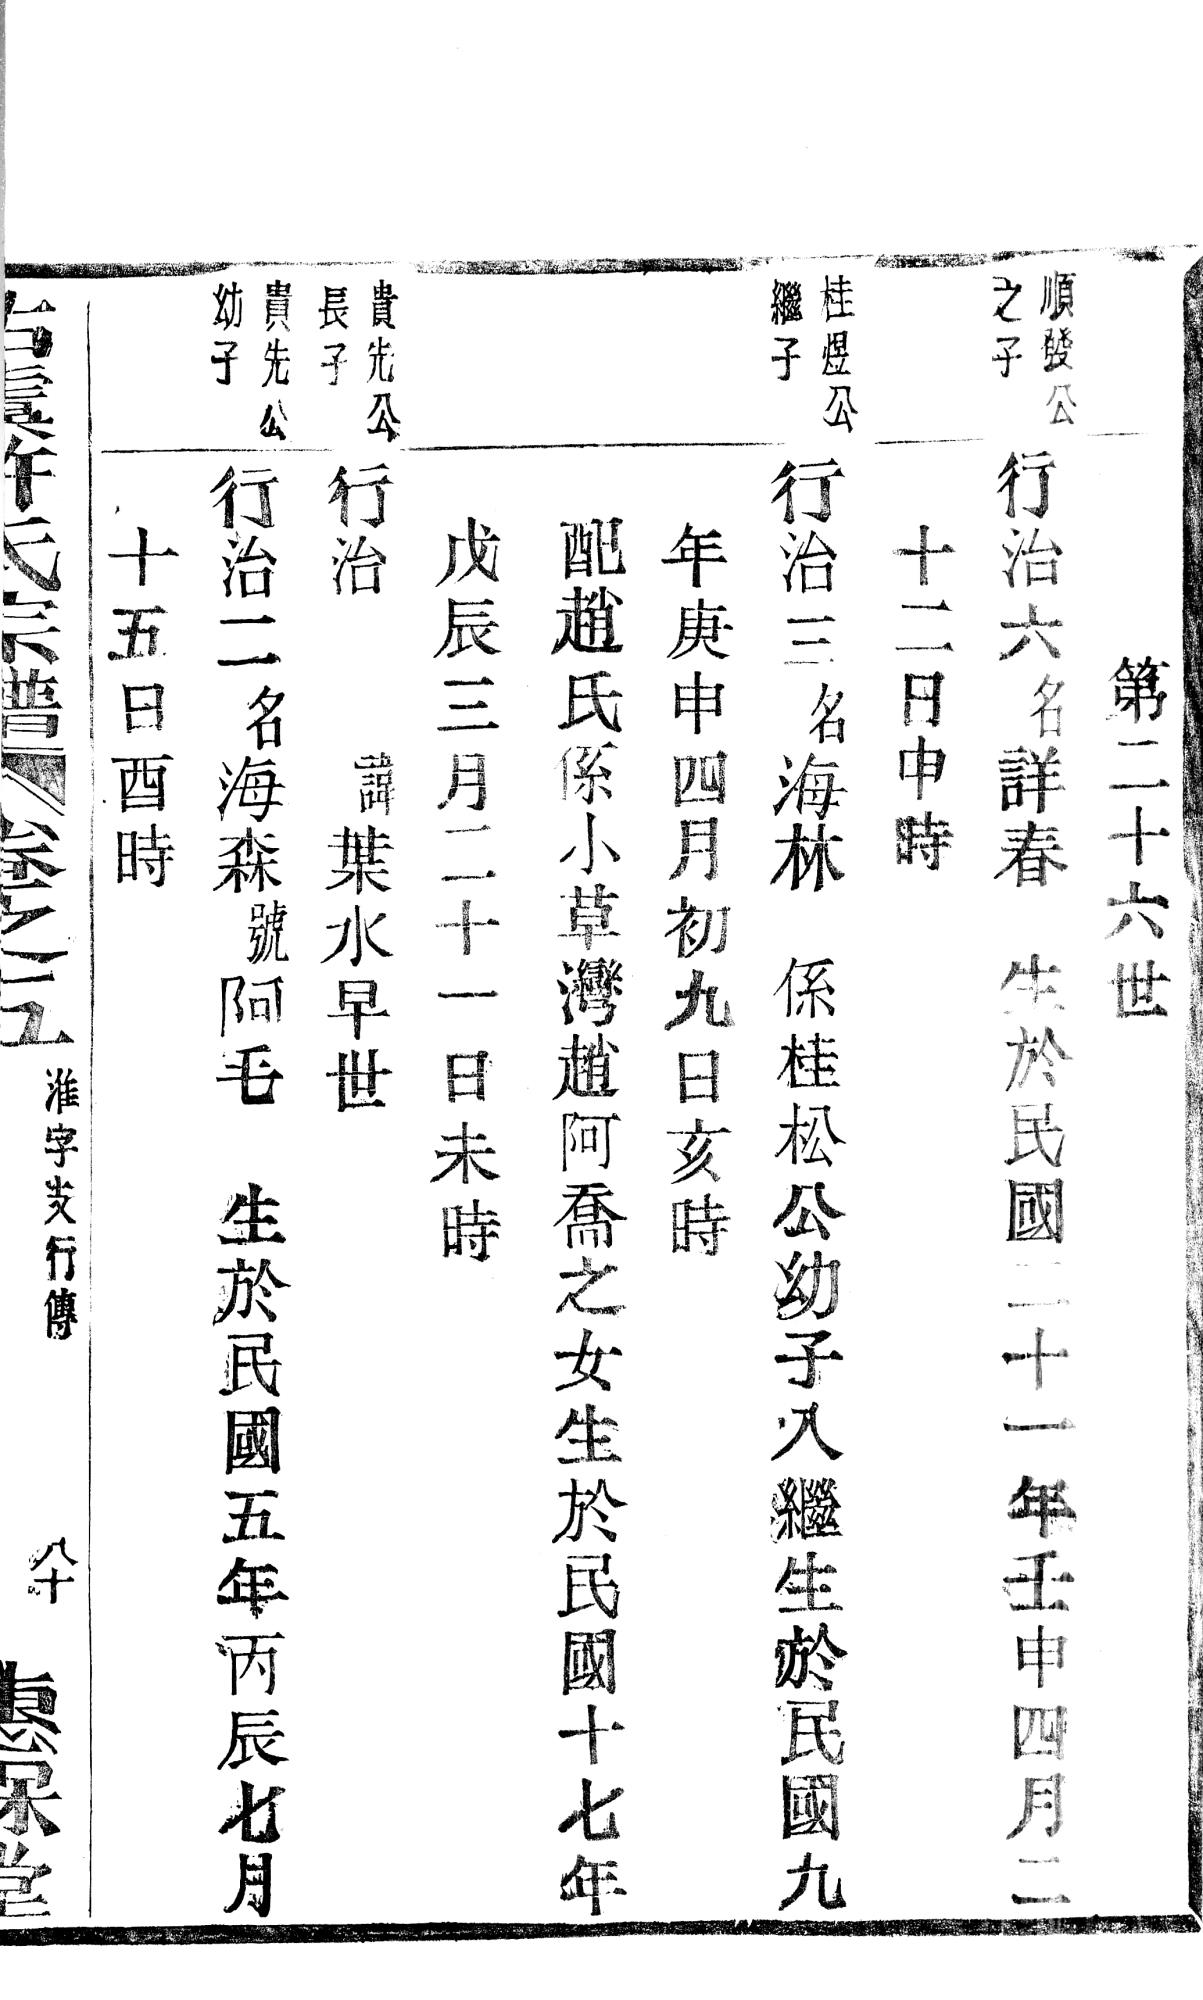 第二十六世
順發公
之子
行治六名詳春 生於民國二十一年壬申四月二
十二日申時
桂煜公
繼子
行治三名海林 係桂松公幼子入繼生於民國九
年庚申四月初九日亥時
配趙氏係小草灣趙阿喬之女生於民國十七年
戊辰三月二十一日未時
貴先公
長子
行治 諱葉水早世
貴先公
幼子
行治二名海森號阿毛 生於民國五年丙辰七月
十五日酉時
許氏宗譜 卷之五
淮字支行傳
八十
堂